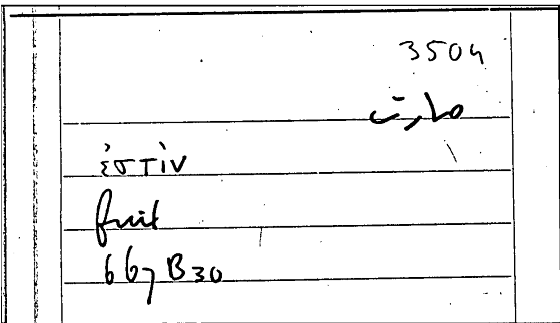 3504
صارت
ἐστίν
fuit
667 B 30